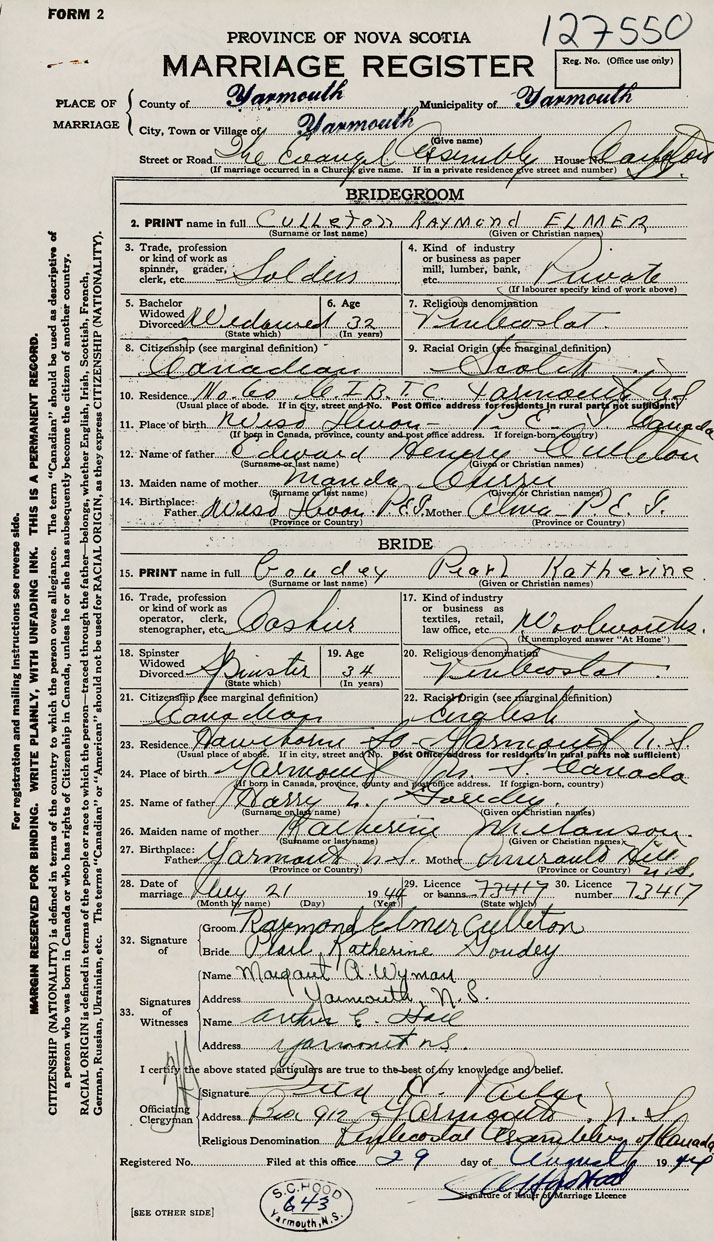 FORM 2
127550
PROVINCE OF NOVA SCOTIA
MARRIAGE REGISTER
Reg. No. (Office use only)
PLACE OF MARRIAGE
County of Yarmouth Municipality of Yarmouth
City, Town or Village of Yarmouth
(Give name)
Street or Road The Evangel Assembly House No.
(If marriage occurred in a Church, give name. If in a private residence give street and number)
BRIDEGROOM
2. PRINT name in full Culleton RAYMOND ELMER
(Surname or last name) (Given or Christian names)
3. Trade, profession or kind of work as spinner, grader, clerk, etc. Soldier
4. Kind of industry or business as paper mill, lumber, bank, etc. Private
(If labourer specify kind of work above)
5. Bachelor Widowed Divorced Widowed (State which)
6. Age 32 (In years)
7. Religious denomination Pentecostal
8. Citizenship (see marginal definition) Canadian
9. Racial Origin (see marginal definition) Scotch
10. Residence No. 60 C.I.B.T.C. Yarmouth N.S.
(Usual place of abode. If in city, street and No. Post Office address for residents in rural parts not sufficient)
11. Place of birth P.E.I. Canada
(If born in Canada, province, county and post office address. If foreign-born, country)
12. Name of father Edward Henry Culleton
(Surname or last name) (Given or Christian names)
13. Maiden name of mother Manda
(Surname or last name) (Given or Christian names)
14. Birthplace: Father P.E.I. Mother Alma - P.E.I.
(Province or Country) (Province or Country)
BRIDE
15. PRINT name in full Goudey Pearl Katherine
(Surname or last name) (Given or Christian names)
16. Trade, profession or kind of work as operator, clerk, stenographer, etc. Cashier
17. Kind of industry or business as textiles, retail, law office, etc. Woolworths.
(If unemployed answer "At Home")
18. Spinster Widowed Divorced Spinster (State which)
19. Age 34 (In years)
20. Religious denomination Pentecostal
21. Citizenship (see marginal definition) Canadian
22. Racial Origin (see marginal definition) English
23. Residence Hawthorne St. Yarmouth N.S.
(Usual place of abode. If in city, street and No. Post Office address for residents in rural parts not sufficient)
24. Place of birth Yarmouth N.S. Canada
(If born in Canada, province, county and post office address. If foreign-born, country)
25. Name of father Harry Goudey
(Surname or last name) (Given or Christian names)
26. Maiden name of mother Katherine Melanson
(Surname or last name) (Given or Christian names)
27. Birthplace: Father Yarmouth N.S. Mother Amiraults Hill N.S.
(Province or Country) (Province or Country)
28. Date of marriage Aug 21 1944
(Month by name) (Day) (Year)
29. Licence or banns 73417 (State which)
30. Licence number 73417
32. Signature of
Groom Raymond Elmer Culleton
Bride Pearl Katherine Goudey
33. Signatures of Witnesses
Name Margaret A. Wyman
Address Yarmouth, N.S.
Name Arthur E. Hall
Address Yarmouth N.S.
I certify the above stated particulars are true to the best of my knowledge and belief.
Officiating Clergyman
Signature Fred
Address Box 912 Yarmouth N.S.
Religious Denomination Pentecostal Assemblies of Canada
Registered No. Filed at this office 29 day of August 1944
Signature of Issuer of Marriage Licence
S.C. HOOD
643
Yarmouth, N.S.
[SEE OTHER SIDE]
For registration and mailing instructions see reverse side.
MARGIN RESERVED FOR BINDING. WRITE PLAINLY, WITH UNFADING INK. THIS IS A PERMANENT RECORD.
CITIZENSHIP (NATIONALITY) is defined in terms of the country to which the person owes allegiance. The term "Canadian" should be used as descriptive of
a person who was born in Canada or who has rights of Citizenship in Canada, unless he or she has subsequently become the citizen of another country.
RACIAL ORIGIN is defined in terms of the people or race to which the person—traced through the father—belongs, whether English, Irish, Scottish, French,
German, Russian, Ukrainian, etc. The terms "Canadian" or "American" should not be used for RACIAL ORIGIN, as they express CITIZENSHIP (NATIONALITY).